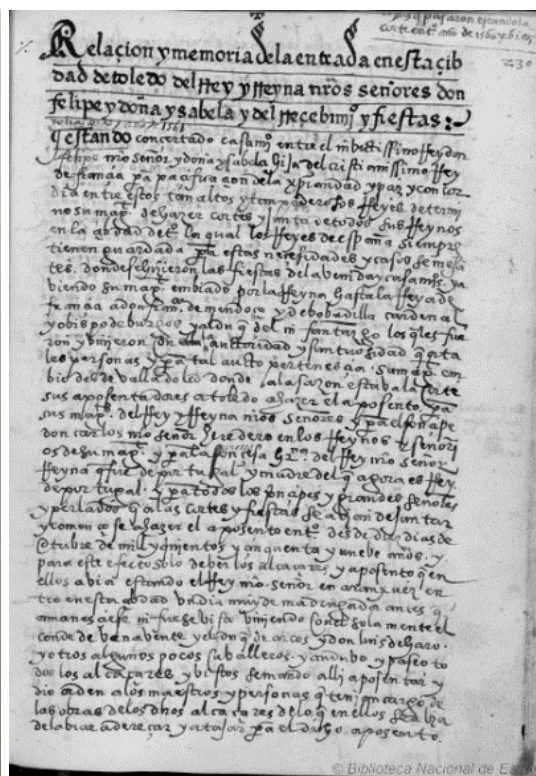 q pasaron en toledo
corte en tº año de 1560 y bies
230
Relaçion y memoria de la entrada en esta çib
dad de toledo del Rey y Reyna nr̃os señores don
felipe y doña ysabela y del Reçebimiº y fiestas :~
1561
q̃ estando concertado casamiº entre el inbictissimo Rey don
felipe nr̃o señor y doña ysabela hija del cristianissimo Rey
de françia pª pacificaçion de la xp̃iandad y paz y concor
dia entre estos tan altos y tan poderosos Reyes determi
no su magª. de hazer cortes y junta de todos sus Reynos
en la çibdad de tº. la qual los Reyes de españa siempre
tienen guardada pª estas neçesidades y casos semeja
tes. donde se hizieron las fiestas de la venida y casamiº. ya
viendo su magª. embiado por la Reyna hasta la Raya de
françia a don franº. de mendoça y de bobadilla cardenal
y obispo de burgos y al duq̃ del infantazgo los q̃les fue
ron y vinieron con la auctoridad y suntuosidad q̃ a ta
les personas y pª tal aucto perteneçia. su magª. em
bio desde valladolid donde a la sazon estava la corte
sus aposentadores a toledo a hazer el aposento pª
sus magª. del Rey y Reyna nr̃os señores y pª el prinçipe
don carlos nr̃o señor heredero en los Reynos e señori
os de su magª. y pª la prinçesa hrª. del Rey nr̃o señor
Reyna q̃ fue de purtugal y madre del q̃ agora es Rey
de purtugal. y pª todos los prinçipes y grandes señores
y perlados q̃ a las cortes y fiestas se avian de juntar
y començose a hazer el aposento en tº. desde diez dias de
otubre de mill y qiñentos y çinquenta y nuebe años. y
para este efecto solo de ver los alcaçares y aposento q̃ en
ellos abia estando el Rey nr̃o señor en aranxuez en
tro en esta çibdad vn dia muy de madrugada antes q̃
amaneçiese ni fuese visto viniendo con el solamente el
conde de venavente y el duq̃ de arcos y don luis de haro.
y otros algunos pocos caballeros. y andubo y paseo to
dos los alcaçares y vistos se mando alli aposentar y
dio orden a los maestros y personas q̃ tenian cargo de
las obras de los dhos alcaçares de lo q̃ en ellos se abia
de labrar adereçar y atajar pª el dicho aposento.
© Biblioteca Nacional de Es